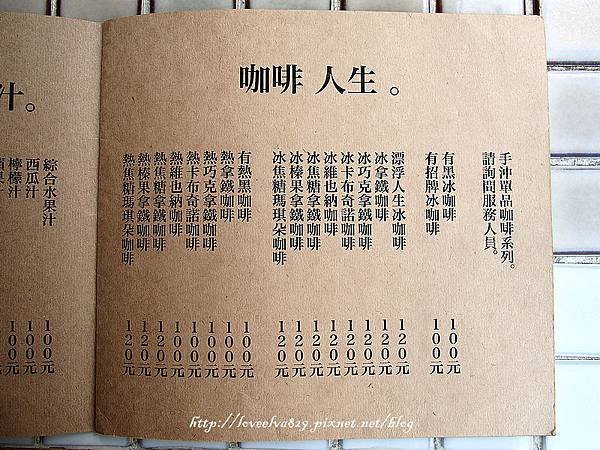 咖啡 人生 。
手沖單品咖啡系列。
請詢問服務人員。
有黑冰咖啡 100元
有招牌冰咖啡 100元
漂浮人生冰咖啡 120元
冰拿鐵咖啡 120元
冰巧克拿鐵咖啡 120元
冰卡布奇諾咖啡 120元
冰維也納咖啡 120元
冰焦糖拿鐵咖啡 120元
冰榛果拿鐵咖啡 120元
冰焦糖瑪琪朵咖啡 120元
有熱黑咖啡 100元
熱拿鐵咖啡 100元
熱巧克拿鐵咖啡 100元
熱卡布奇諾咖啡 100元
熱維也納咖啡 100元
熱焦糖拿鐵咖啡 120元
熱榛果拿鐵咖啡 120元
熱焦糖瑪琪朵咖啡 120元
汁。
綜合水果汁 100元
西瓜汁 100元
檸檬汁 100元
http://loveelva829.pixnet.net/blog